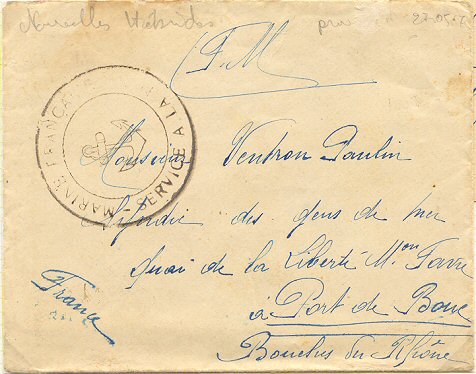 Nouvelles Hébrides
F.M
MARINE FRANÇAISE SERVICE A LA
Monsieur Ventron Paulin
des gens de mer
Quai de la Liberté Mon Favre
à Port de Bouc
Bouches du Rhône
France